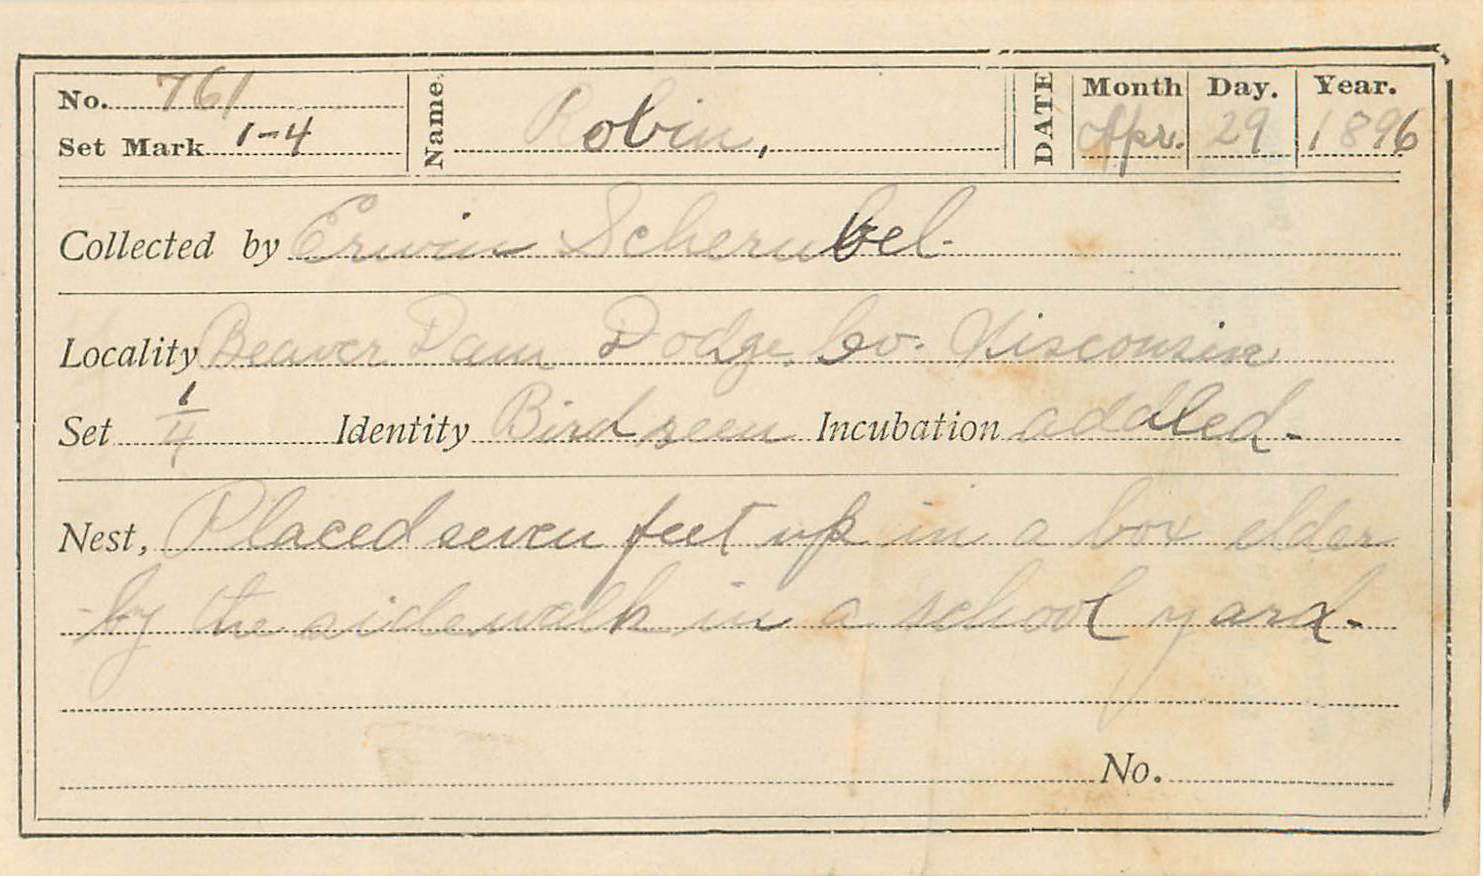 No. 761 Name. Robin, DATE Month Day. Year.
Set Mark 1-4 Apr. 29 1896
Collected by Erwin Schernbel.
Locality Beaver Dam Dodge Co. Wisconsin
Set 1/4 Identity Bird seen Incubation addled.
Nest, Placed seven feet up in a box elder
by the sidewalk in a school yard.
No.